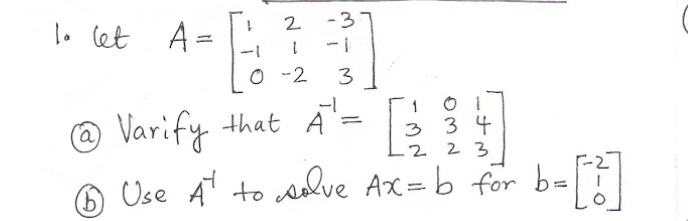 1. let A = [1 2 -3
-1 1 -1
0 -2 3]
ⓐ Varify that A⁻¹ = [1 0 1
3 3 4
2 2 3]
ⓑ Use A⁻¹ to solve Ax = b for b = [-2
1
0]